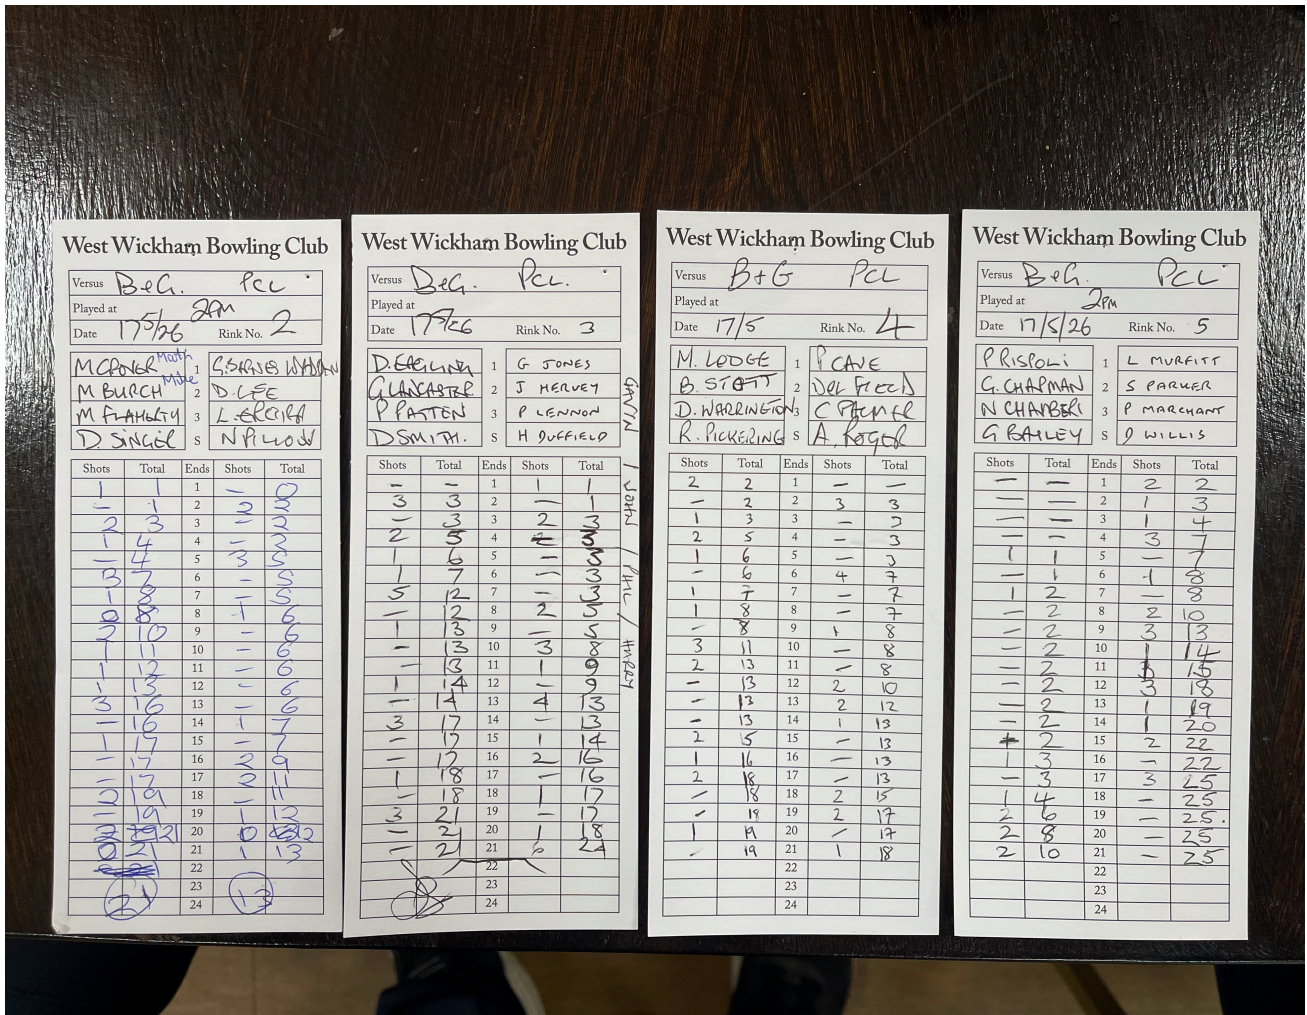 West Wickham Bowling Club
Versus B&G. PCL
Played at 2PM
Date 17/5/26 Rink No. 2
Math 1 G.BARNES
M BURCH Mike 2 D.LEE
M FLAHERTY 3
D. SINGER S
Shots Total Ends Shots Total
1 1 1 - 0
- 1 2 2 2
2 3 3 - 2
1 4 4 - 2
- 4 5 3 5
3 7 6 - 5
1 8 7 - 5
0 8 8 1 6
2 10 9 - 6
1 11 10 - 6
1 12 11 - 6
1 13 12 - 6
3 16 13 - 6
- 16 14 1 7
1 17 15 - 7
- 17 16 2 9
- 17 17 2 11
2 19 18 - 11
- 19 19 1 12
2 21 20 0 12
0 21 21 1 13
22
23
24
21 13
West Wickham Bowling Club
Versus B&G. PCL.
Played at
Date 17/5/26 Rink No. 3
1 G JONES
G LANCASTER 2 J HERVEY
P PATTEN 3 P LENNON
D SMITH. S H DUFFIELD
GAVIN / JOHN / PHIL / HARRY
Shots Total Ends Shots Total
- - 1 1 1
3 3 2 - 1
- 3 3 2 3
2 5 4 - 3
1 6 5 - 3
1 7 6 - 3
5 12 7 - 3
- 12 8 2 5
1 13 9 - 5
- 13 10 3 8
- 13 11 1 9
1 14 12 - 9
- 14 13 4 13
3 17 14 - 13
- 17 15 1 14
- 17 16 2 16
1 18 17 - 16
- 18 18 1 17
3 21 19 - 17
- 21 20 1 18
- 21 21 6 24
22
23
24
West Wickham Bowling Club
Versus B+G PCL
Played at
Date 17/5 Rink No. 4
M. LODGE 1 P CAVE
B. STOTT 2 DEL FIELD
D. WARRINGTON 3 C PALMER
R. PICKERING S A. ROGER
Shots Total Ends Shots Total
2 2 1 - -
- 2 2 3 3
1 3 3 - 3
2 5 4 - 3
1 6 5 - 3
- 6 6 4 7
1 7 7 - 7
1 8 8 - 7
- 8 9 1 8
3 11 10 - 8
2 13 11 - 8
- 13 12 2 10
- 13 13 2 12
- 13 14 1 13
2 15 15 - 13
1 16 16 - 13
2 18 17 - 13
- 18 18 2 15
- 18 19 2 17
1 19 20 - 17
- 19 21 1 18
22
23
24
West Wickham Bowling Club
Versus B&G. PCL
Played at 2PM
Date 17/5/26 Rink No. 5
P RISPOLI 1 L MURFITT
G. CHAPMAN 2 S PARKER
N CHAMBERS 3 P MARCHANT
G BAILEY S D WILLIS
Shots Total Ends Shots Total
- - 1 2 2
- - 2 1 3
- - 3 1 4
- - 4 3 7
1 1 5 - 7
- 1 6 1 8
1 2 7 - 8
- 2 8 2 10
- 2 9 3 13
- 2 10 1 14
- 2 11 1 15
- 2 12 3 18
- 2 13 1 19
- 2 14 1 20
- 2 15 2 22
1 3 16 - 22
- 3 17 3 25
1 4 18 - 25
2 6 19 - 25.
2 8 20 - 25
2 10 21 - 25
22
23
24